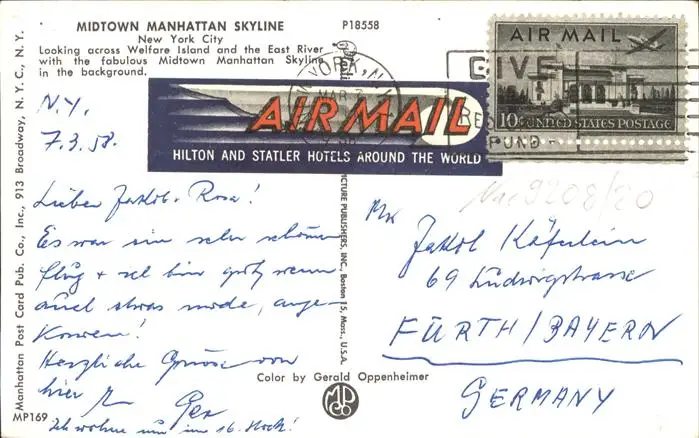 MIDTOWN MANHATTAN SKYLINE
New York City
Looking across Welfare Island and the East River
with the fabulous Midtown Manhattan Skyline
in the background.
P18558
N.Y.
7.3.58.
Lieber Jakob + Rosa!
Es war ein sehr schöner
Flug + ich bin gut, wenn
auch etwas müde, ange-
kommen!
Herzliche Grüsse von
hier
Ich wohne im 16. Stock!
AIR MAIL
HILTON AND STATLER HOTELS AROUND THE WORLD
AIR MAIL
10¢ UNITED STATES POSTAGE
GIVE
FUND
9208/20
Jakob Käferlein
69 Ludwigstrasse
FÜRTH/BAYERN
GERMANY
Color by Gerald Oppenheimer
MPCO
Manhattan Post Card Pub. Co., Inc., 913 Broadway, N. Y. C., N. Y.
MP169
PICTURE PUBLISHERS, INC., Boston 15, Mass., U.S.A.